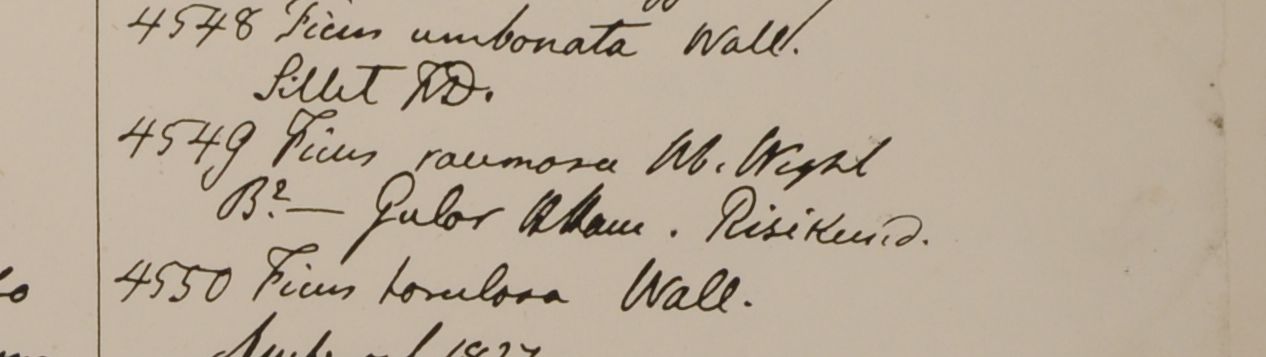 4548 Ficus umbonata Wall.
Sillet FD.
4549 Ficus racemosa Hb. Wight
B? — Gular Ham. Risikund.
4550 Ficus torulosa Wall.
1827